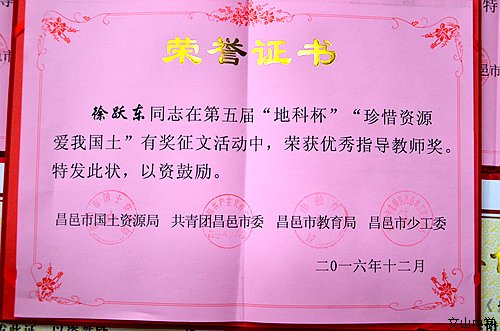 荣誉证书
徐跃东同志在第五届“地科杯”“珍惜资源
爱我国土”有奖征文活动中，荣获优秀指导教师奖。
特发此状，以资鼓励。
昌邑市国土资源局 共青团昌邑市委 昌邑市教育局 昌邑市少工委
二〇一六年十二月